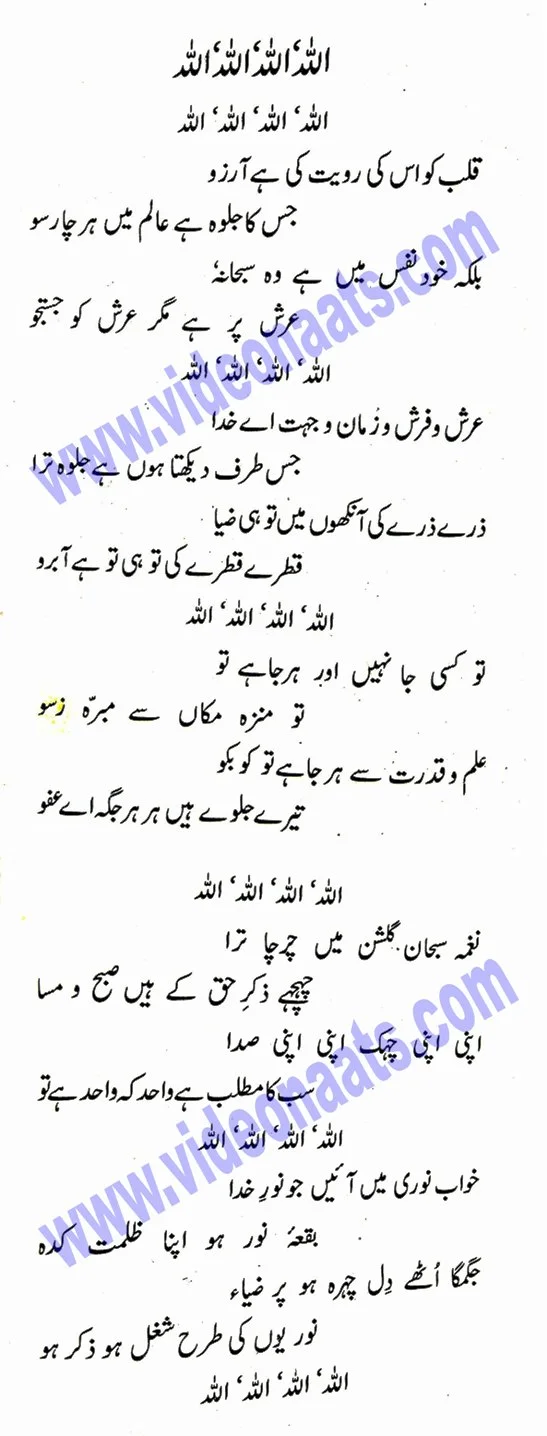 اللہ‘ اللہ‘ اللہ‘ اللہ
اللہ‘ اللہ‘ اللہ‘ اللہ
قلب کو اس کی رویت کی ہے آرزو
جس کا جلوہ ہے عالم میں ہر چار سو
بلکہ خود نفس میں ہے وہ سبحانہٗ
عرش پر ہے مگر عرش کو جستجو
اللہ‘ اللہ‘ اللہ‘ اللہ
عرش و فرش و زمان و جہت اے خدا
جس طرف دیکھتا ہوں ہے جلوہ ترا
ذرے ذرے کی آنکھوں میں تو ہی ضیا
قطرے قطرے کی تو ہی تو ہے آبرو
اللہ‘ اللہ‘ اللہ‘ اللہ
تو کسی جا نہیں اور ہر جا ہے تو
تو منزہ مکاں سے مبرّہ زسو
علم و قدرت سے ہر جا ہے تو کو بکو
تیرے جلوے ہیں ہر ہر جگہ اے عفو
اللہ‘ اللہ‘ اللہ‘ اللہ
نغمہ سبحان گلشن میں چرچا ترا
چہچہے ذکرِ حق کے ہیں صبح و مسا
اپنی اپنی چہک اپنی اپنی صدا
سب کا مطلب ہے واحد کہ واحد ہے تو
اللہ‘ اللہ‘ اللہ‘ اللہ
خواب نوری میں آئیں جو نورِ خدا
بقعۂ نور ہو اپنا ظلمت کدہ
جگمگا اُٹھے دِل چہرہ ہو پر ضیاء
نوریوں کی طرح شغل ہو ذکر ہو
اللہ‘ اللہ‘ اللہ‘ اللہ
www.videonaats.com
www.videonaats.com